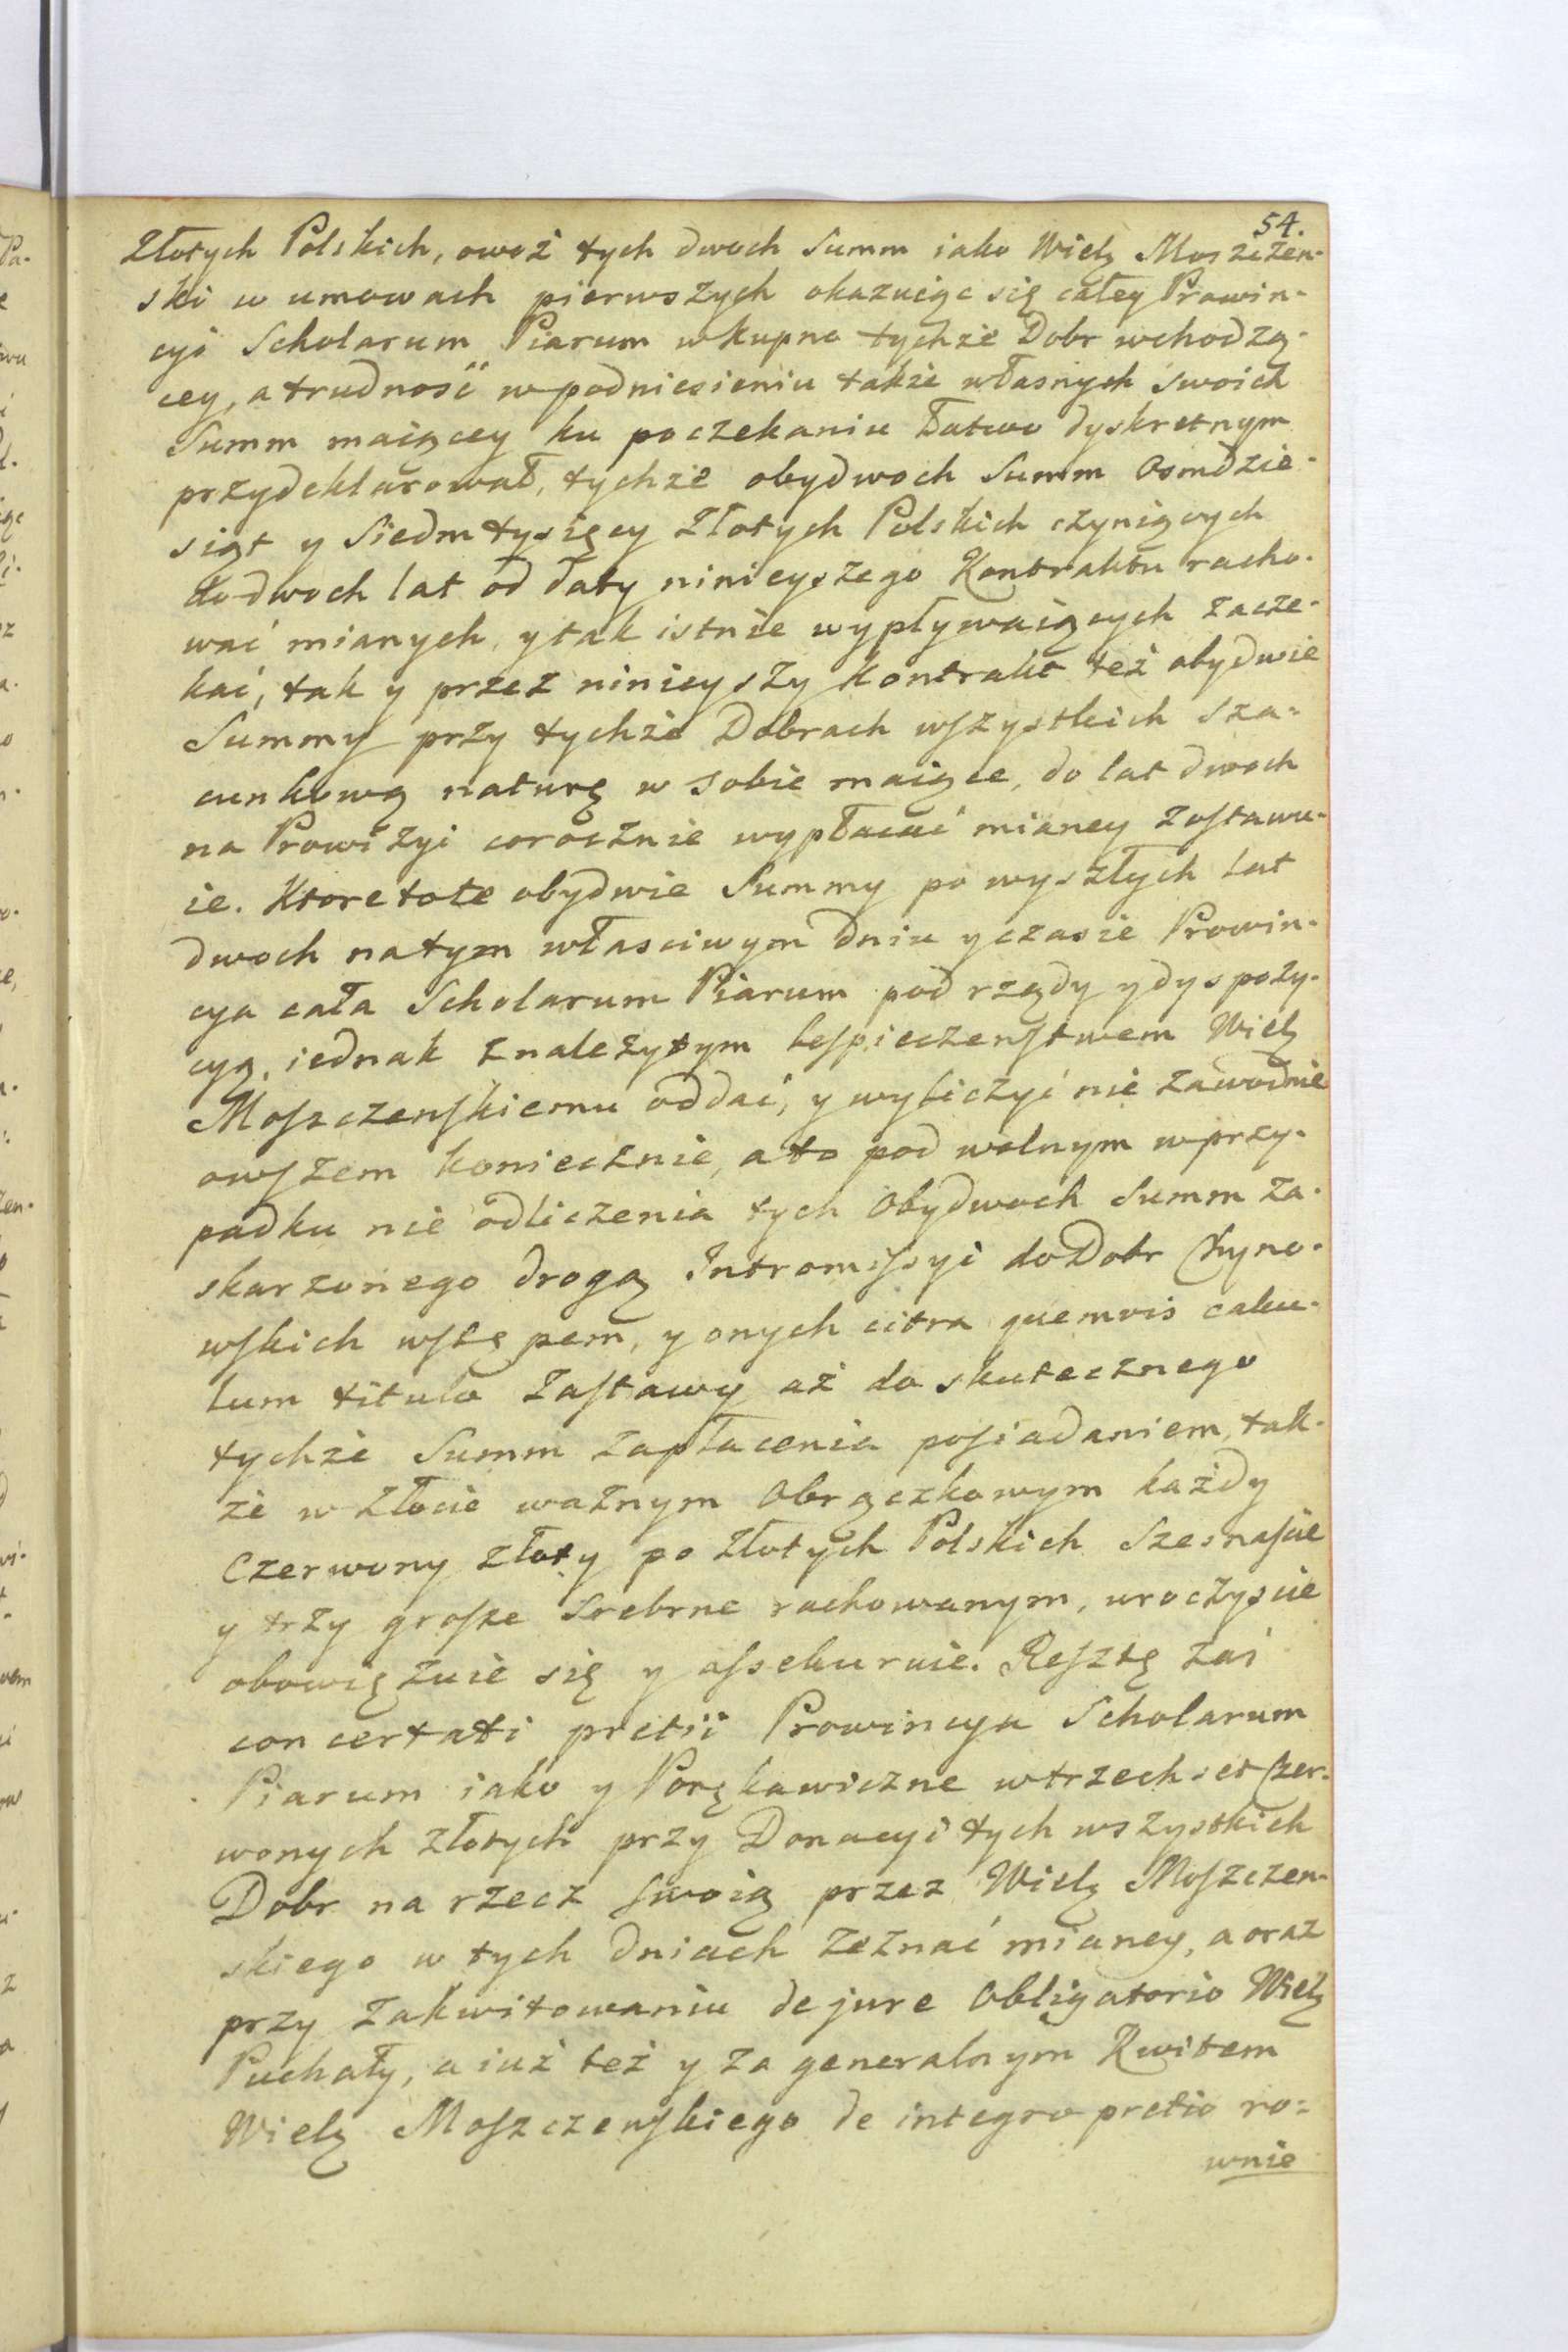 54.
Złotych Polskich, owoż tych dwoch Summ iako Wielg Moszczen-
ski w umowach pierwszych okazuiąc się całey Prowin-
cyi Scholarum Piarum w kupno tychże Dobr wchodzą-
cey, a trudność w podniesieniu także własnych swoich
Summ maiącey ku poczekaniu Łatwo dyskretnym
przydeklarował, tychże obydwoch Summ Osmdzie-
siąt y Siedm tysięcy Złotych Polskich czyniących
do dwoch lat od daty ninieyszego Kontraktu racho-
wać mianych, y tak istnie wypływaiących zacze-
kać, tak y przez ninieyszy Kontrakt też obydwie
Summy przy tychże Dobrach wszystkich sza-
cunkową naturę w sobie maiące, do lat dwoch
na Prowizyi corocznie wypłacać mianey zostawu-
ie. Ktore to te obydwie Summy po wyszłych lat
dwoch na tym własciwym dniu y czasie Prowin-
cya cała Scholarum Piarum pod rządy y dyspozy-
cyą, iednak z należytym bespieczenstwem Wielg
Moszczenskiemu oddać, y wyliczyć nie zawodnie
owszem koniecznie, a to pod wolnym w przy-
padku nie odliczenia tych Obydwoch Summ za-
skarzonego drogą Intromissyi do Dobr Chyno-
wskich wstępem, y onych citra quemvis calcu-
lum titulo Zastawy aż do skutecznego
tychże Summ zapłacenia posiadaniem, tak-
że w złocie ważnym Obrączkowym każdy
Czerwony złoty po Złotych Polskich Szesnascie
y trzy grosze srebrne rachowanym, uroczyscie
obowięzuie się y assekuruie. Resztę zaś
concertati pretii Prowincya Scholarum
Piarum iako y Porękawiczne w trzech set Czer-
wonych złotych przy Donacyi tych wszystkich
Dobr na rzecz swoią przez Wielg Moszczen-
skiego w tych dniach zeznać mianey, a oraz
przy zakwitowaniu de jure Obligatorio Wielg
Puchały, a iuż też y za generalnym Kwitem
Wielg Moszczenskiego de integro pretio ro-
wnie